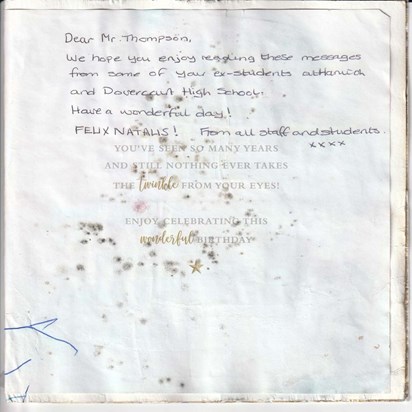 Dear Mr. Thompson,
We hope you enjoy reading these messages
from some of your ex-students at Harwich
and Dovercourt High School.
Have a wonderful day!
FELIX NATALIS! From all staff and students.
xxxx
YOU'VE SEEN SO MANY YEARS
AND STILL NOTHING EVER TAKES
THE twinkle FROM YOUR EYES!
ENJOY CELEBRATING THIS
wonderful BIRTHDAY